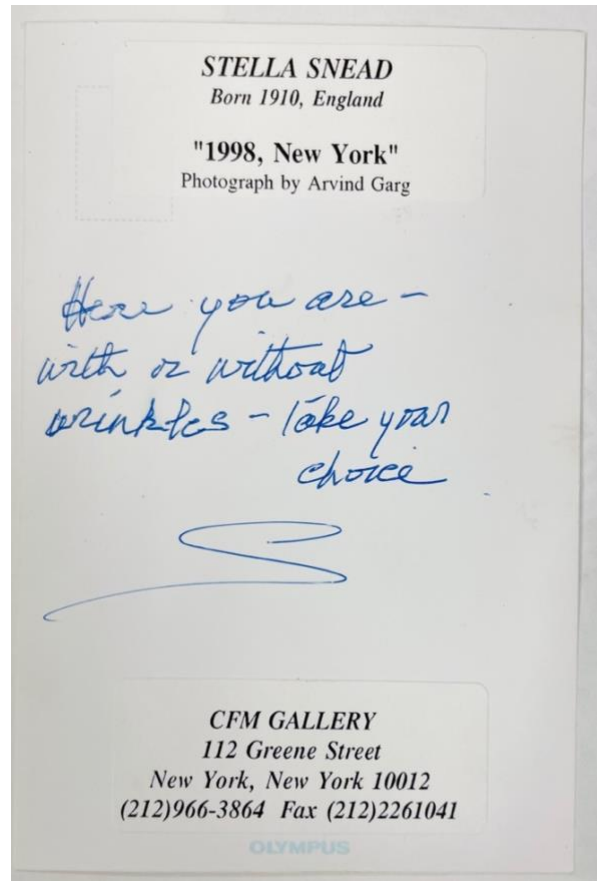 STELLA SNEAD
Born 1910, England
"1998, New York"
Photograph by Arvind Garg
Here you are –
with or without
wrinkles – take your
choice
S
CFM GALLERY
112 Greene Street
New York, New York 10012
(212)966-3864 Fax (212)2261041
OLYMPUS